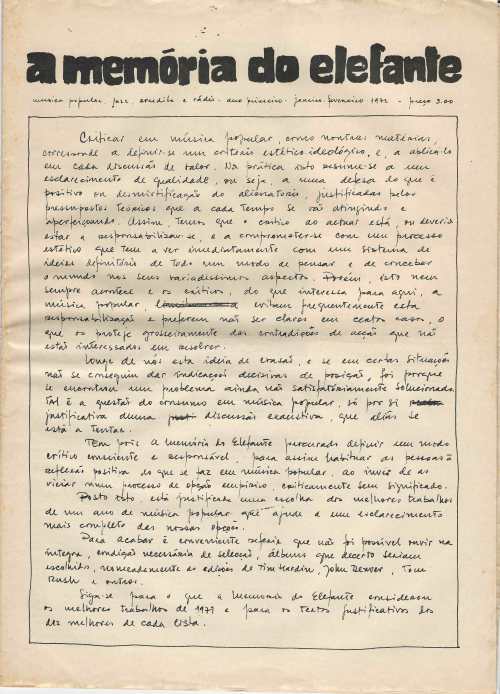 a memória do elefante
música popular, jazz, erudita e rádio. ano primeiro. janeiro-fevereiro 1972 - preço 3.00
Criticar em música popular, como noutras matérias,
corresponde a definir-se um critério estético-ideológico, e, a aplicá-lo
em cada discussão de valor. Na prática isto resume-se a um
esclarecimento de qualidade, ou seja, a uma defesa do que é
positivo ou desmistificação do alienatório, justificadas pelos
pressupostos teóricos que a cada tempo se vão atingindo e
aperfeiçoando. Assim, temos que o crítico ao actuar está, ou deveria
estar a responsabilizar-se, e a comprometer-se com um processo
estético que tem a ver imediatamente com um sistema de
ideias definitório de todo um modo de pensar e de conceber
o mundo nos seus variadíssimos aspectos. Porém, isto nem
sempre acontece e os críticos, do que interessa para aqui, a
música popular, evitam frequentemente esta
responsabilização e preferem não ser claros em certos casos, o
que os protege grosseiramente das contradições de acção que não
estão interessados em resolver.
Longe de nós esta ideia de evasão, e se em certas situações
não se conseguiu dar indicações decisivas de posição, foi porque
se encontrava um problema ainda não satisfatoriamente solucionado.
Tal é a questão do consumo em música popular, só por si
justificativa duma discussão exaustiva, que aliás se
está a tentar.
Tem pois a Memória do Elefante procurado definir um modo
crítico consciente e responsável, para assim habituar as pessoas à
reflexão positiva do que se faz em música popular, ao invés de as
viciar num processo de opção empírico, criticamente sem significado.
Posto isto, está justificada uma escolha dos melhores trabalhos
de um ano de música popular que ajude a um esclarecimento
mais completo das nossas opções.
Para acabar é conveniente referir que não foi possível ouvir na
íntegra, condição necessária de selecção, álbuns que decerto seriam
escolhidos, nomeadamente as edições de Tim Hardin, John Denver, Tom
Rush e outros.
Siga-se para o que a Memória do Elefante considerou
os melhores trabalhos de 1971 e para os textos justificativos dos
dez melhores de cada lista.